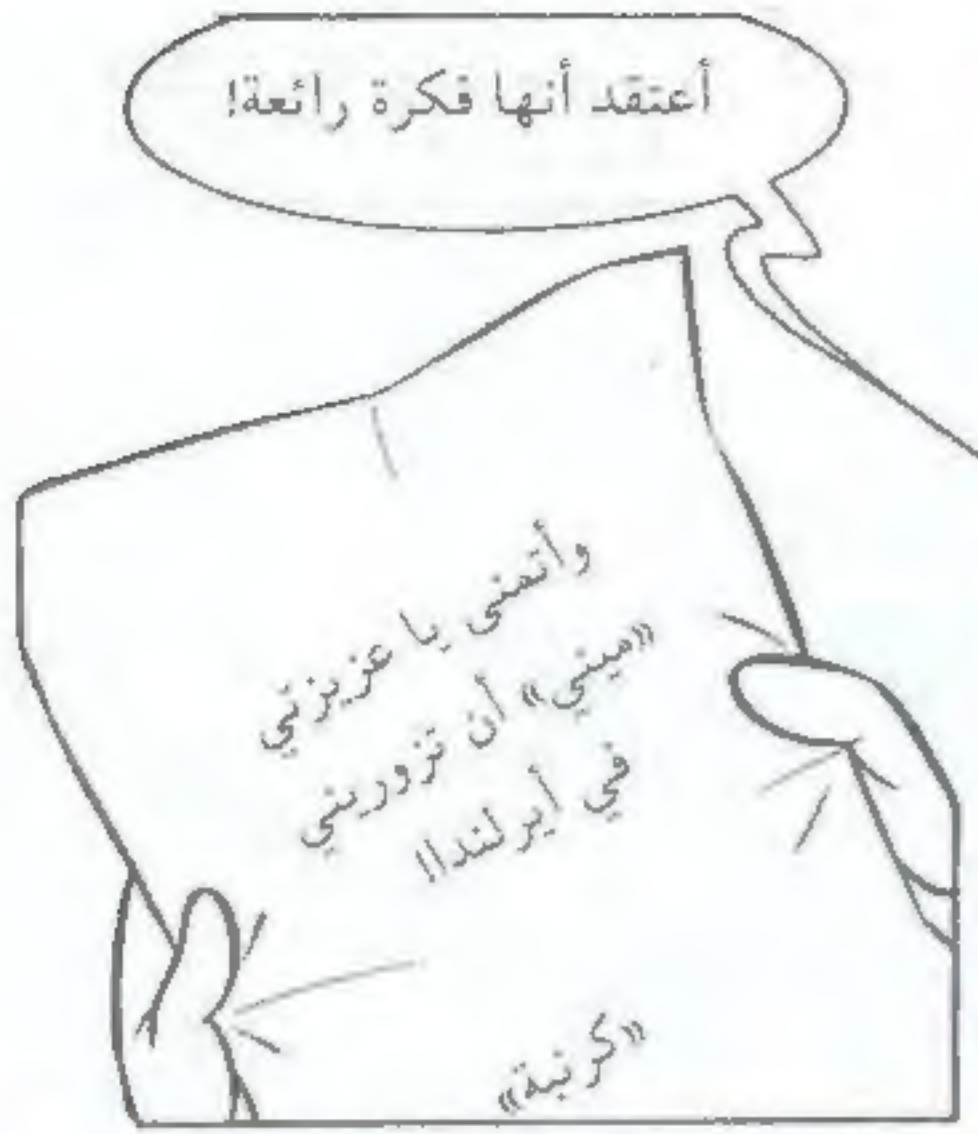 أعتقد أنها فكرة رائعة!
وأتمنى يا عزيزتي
«ميني» أن تزوريني
في أيرلندا!!
«كرنبة»